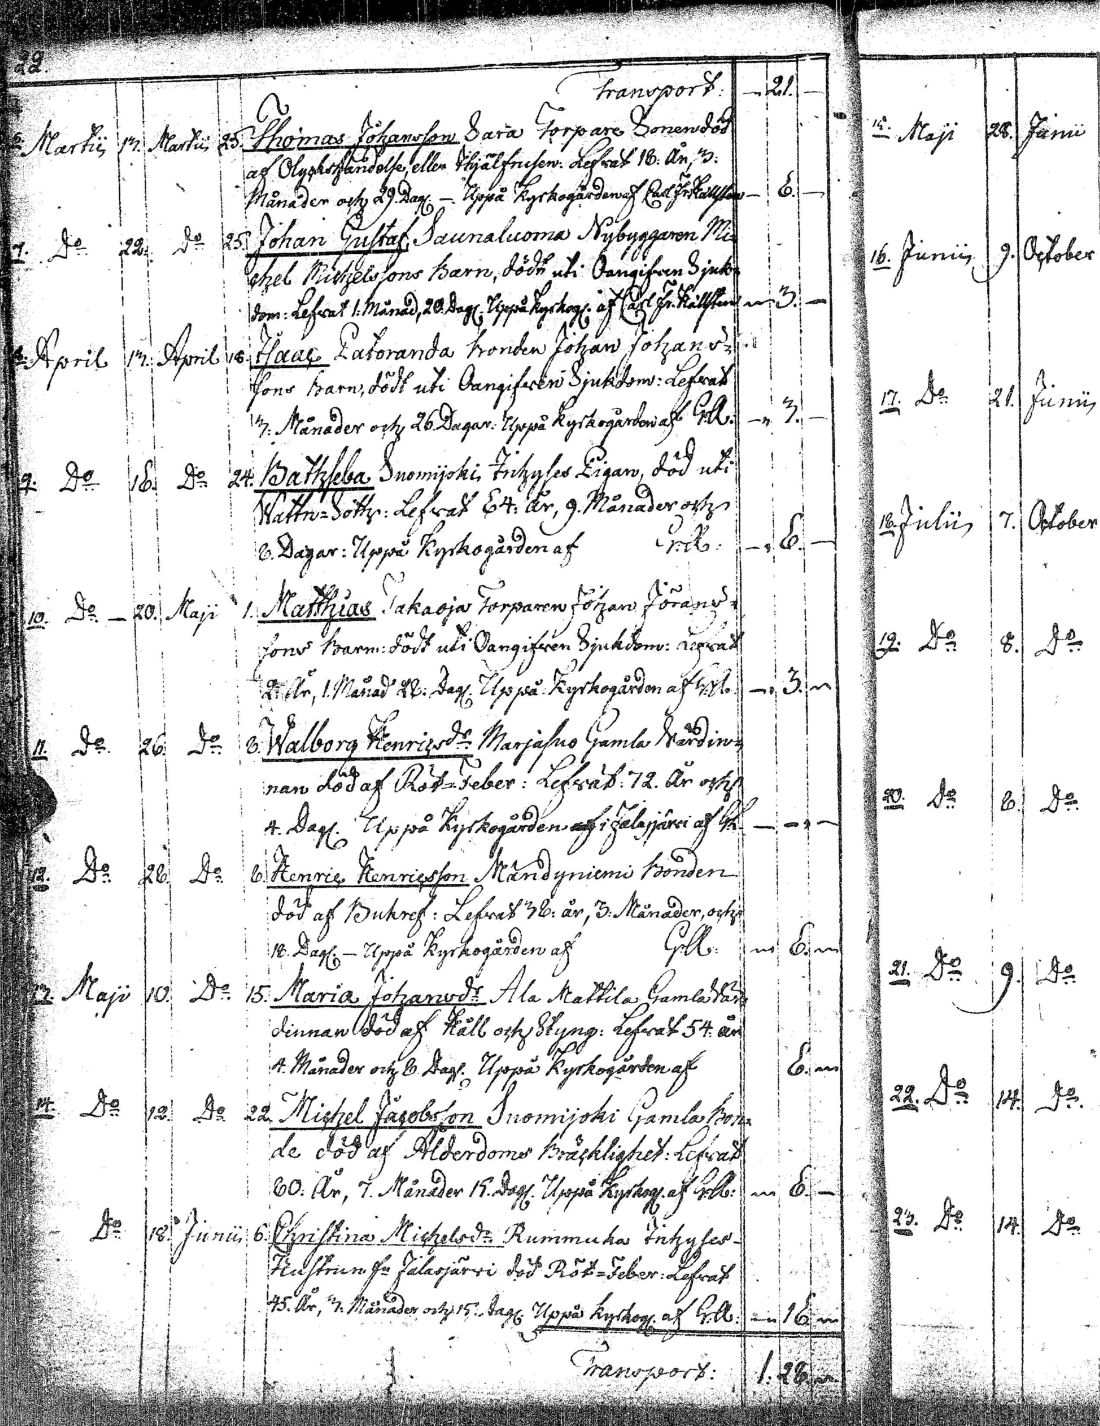 22.
Transport: – 21. –
6. Martii 17. Martii 25. Thomas Johansson Sara Torpare Sonen död
af Olyckshändelse, eller ihjälfrusen: Lefvat 18. År, 7:
Månader och 29. Dag. – Uppå Kyrkogården af Carl Fr. Källström – 6. –
7. Do 22. Do 25. Johan Gustaf Saunaluoma Nybyggaren Mi-
chel Michelssons Barn, dödt uti Oangifven Sjuk-
dom: Lefvat 1. Månad, 20. Dag. Uppå Kyrkog. af Carl Fr. Källström 3. –
8. April 17. April 18. Isaac Latoranda Bonden Johan Johans-
sons Barn, dödt uti Oangifven Sjukdom: Lefvat
7. Månader och 26. Dagar: Uppå Kyrkogården af – 3. –
9. Do 16. Do 24. Bathseba Suomijoki Inhyses Pigan, död uti
Wattu-Soth: Lefvat 64: År, 9. Månader och
8. Dagar: Uppå Kyrkogården af – 6. –
10. Do – 20. Maji 1. Matthias Takaoja Torparen Johan Jörans-
sons Barn: dödt uti Oangifven Sjukdom: Lefvat
2. År, 1. Månad 22: Dag. Uppå Kyrkogården af – 3.
11. Do 26. Do 8. Walborg Henricsdr Marjasuo Gamla Värdin-
nan död af Röt-Feber: Lefvat: 72. År och
4. Dag. Uppå Kyrkogården i Jalasjärvi af – – –
12. Do 28. Do 8. Henric Henricsson Mändyniemi Bonden
död af Bukref: Lefvat 38: år, 3: Månader, och
18. Dag. – Uppå Kyrkogården af 6.
13. Maji 10. Do 15. Maria Johansdr Ala Mattila Gamla Vär-
dinnan död af Håll och Styng: Lefvat 54. år
4. Månader och 8 Dag. Uppå Kyrkogården af 6.
14. Do 12. Do 22. Michel Jacobsson Suomijoki Gamla Bon-
de död af Ålderdoms Bräcklighet: Lefvat
80: År, 7. Månader 15. Dag. Uppå Kyrkog. af 6. –
Do 18. Junii 6. Christina Michelsdr Rummuka Inhyses-
Hustrun fr Jalasjärvi död Röt-Feber: Lefvat
45. År, 7: Månader och 15. Dag. Uppå Kyrkog. af 16
Transport: 1. 28.
15. Maji 28. Junii
16. Junii 9. October
17. Do 21. Junii
18. Julii 7. October
19. Do 8. Do
20. Do 8. Do
21. Do 9. Do
22. Do 14. Do
23. Do 14. Do